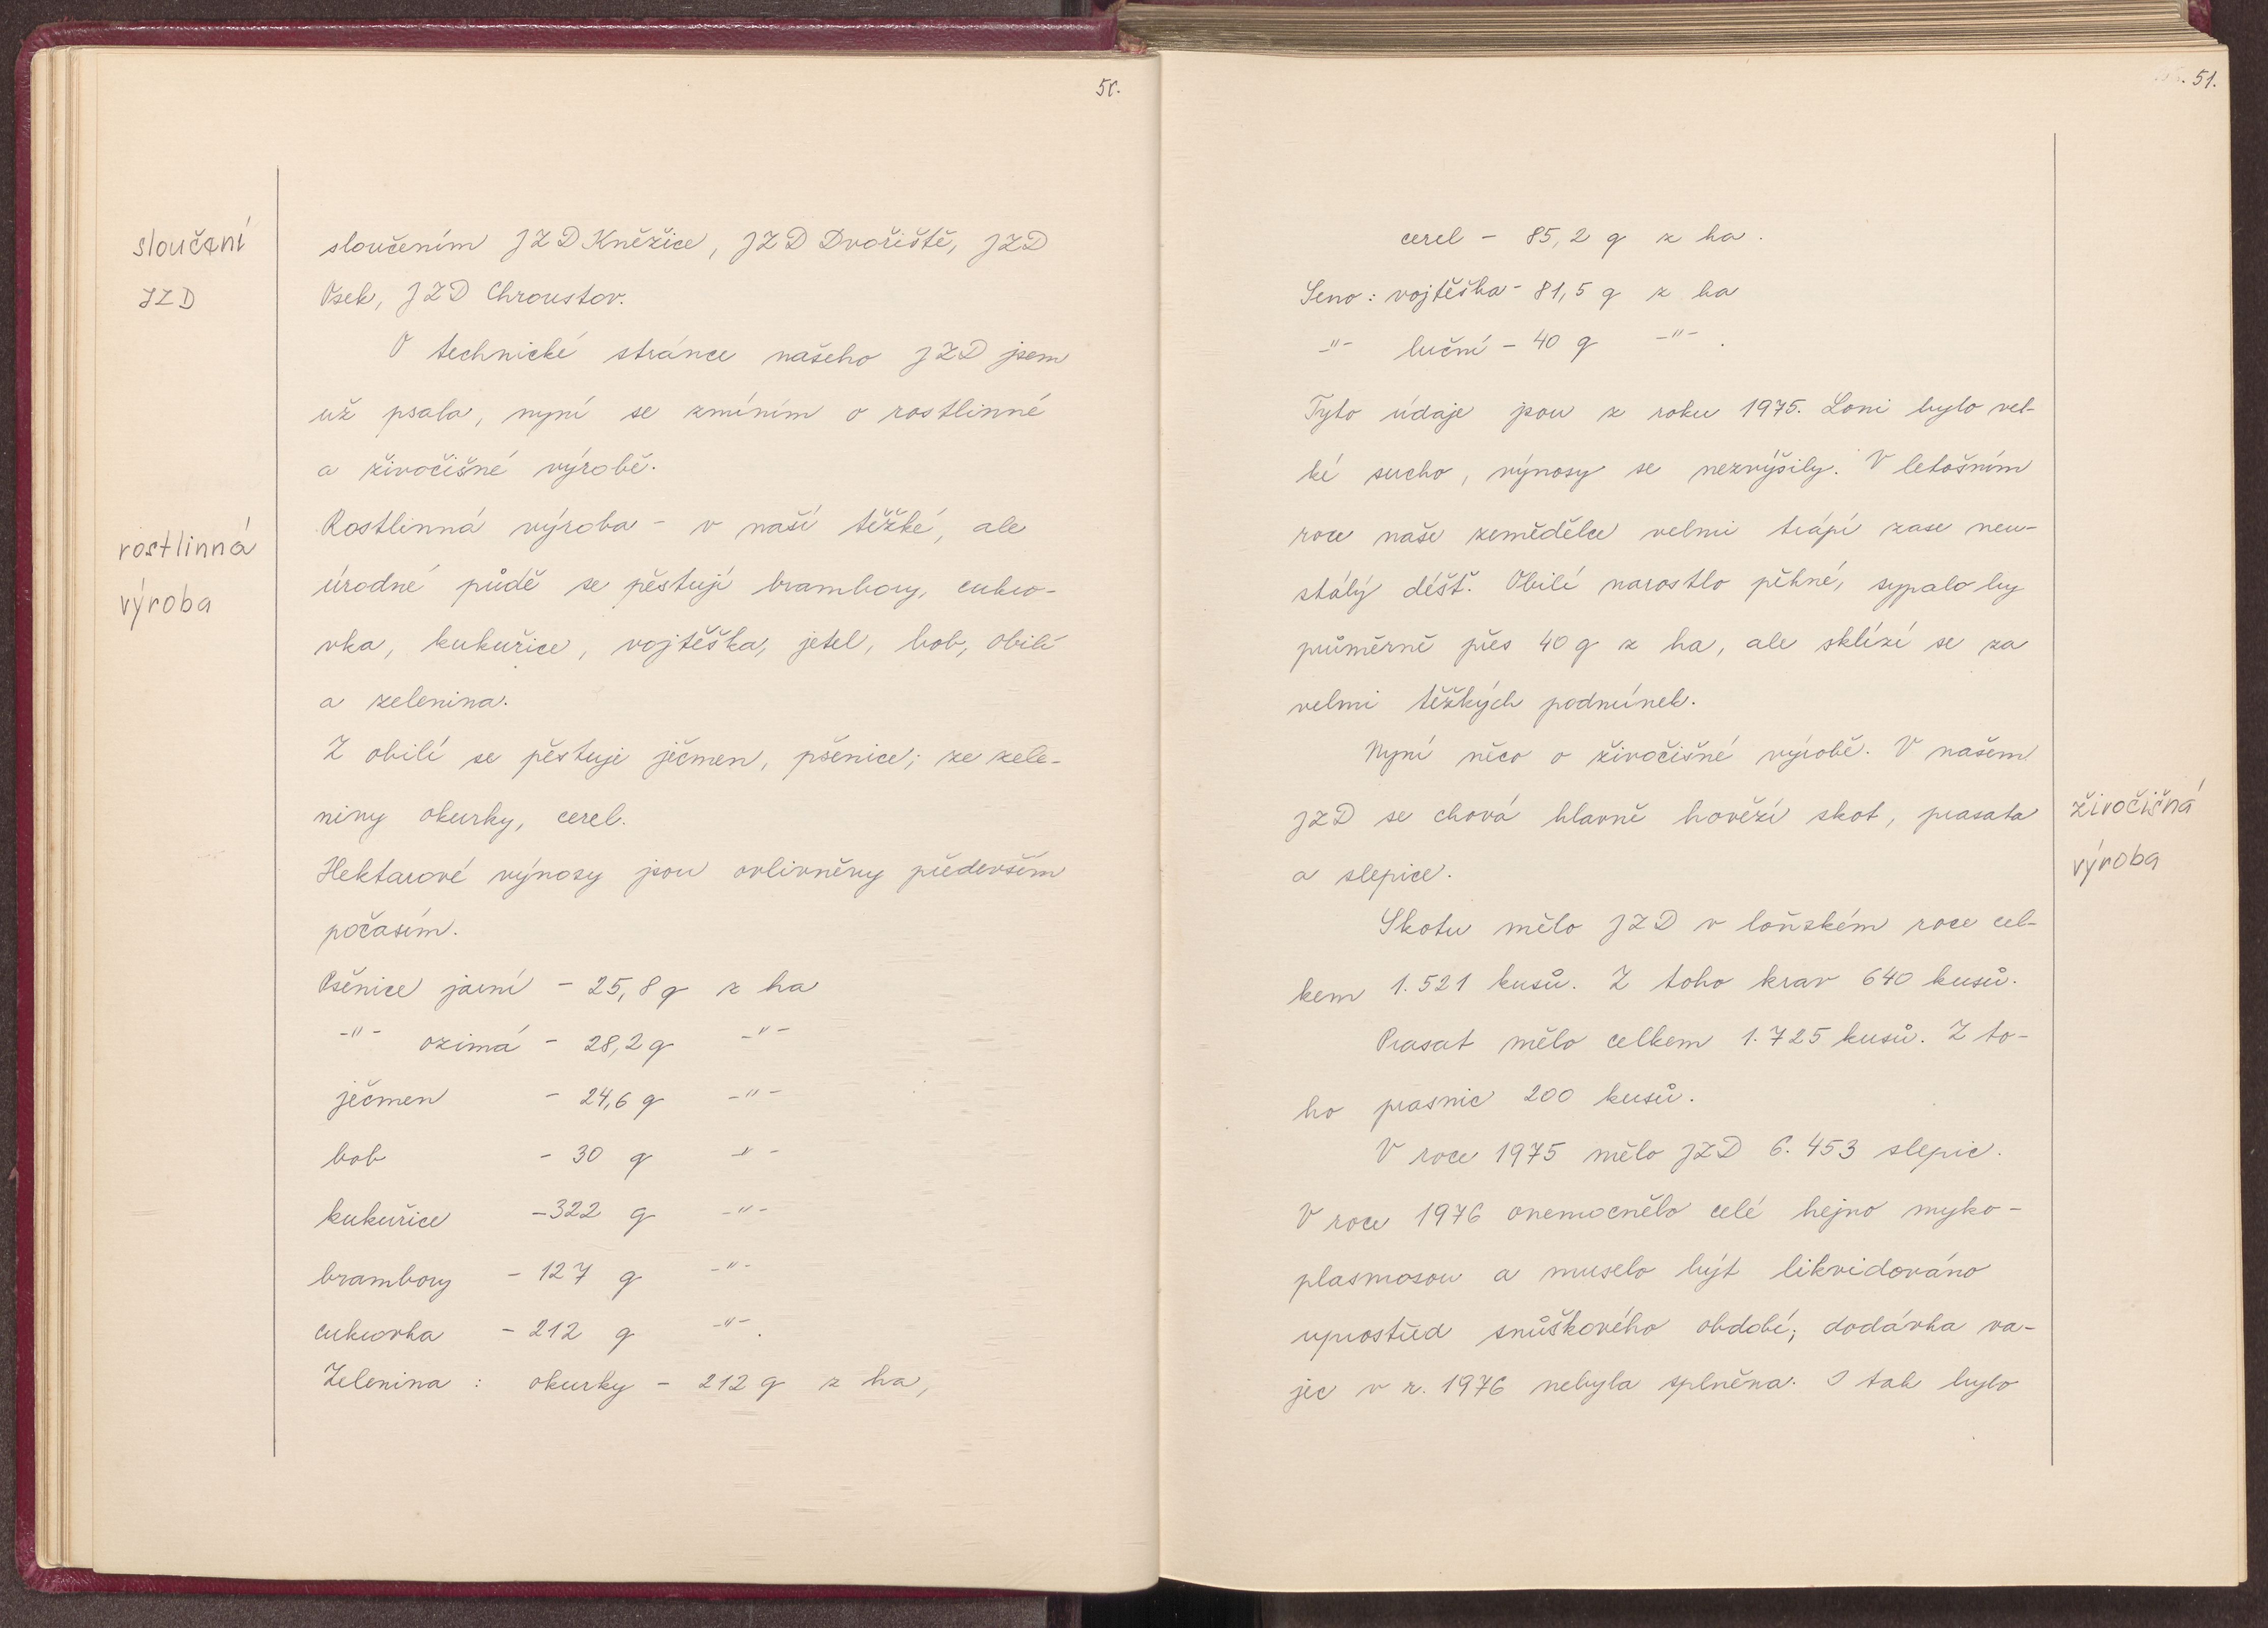 50.
sloučení
JZD
sloučením JZD Kněžice, JZD Dvořiště, JZD
Osek, JZD Chroustov.
O technické stránce našeho JZD jsem
už psala, nyní se zmíním o rostlinné
a živočišné výrobě.
rostlinná
výroba
Rostlinná výroba - v naší těžké, ale
úrodné půdě se pěstují brambory, cukro-
vka, kukuřice, vojtěška, jetel, bob, obilí
a zelenina.
Z obilí se pěstuje ječmen, pšenice; ze zele-
niny okurky, cerel.
Hektarové výnosy jsou ovlivněny především
počasím.
Pšenice jarní - 25,8 q z ha
-"- ozimá - 28,2 q -"-
ječmen - 24,6 q -"-
bob - 30 q -"-
kukuřice - 322 q -"-
brambory - 127 q -"-
cukrovka - 212 q -"-.
Zelenina : okurky - 212 q z ha,
51.
cerel - 85,2 q z ha.
Seno : vojtěška - 81,5 q z ha
-"- luční - 40 q -"-.
Tyto údaje jsou z roku 1975. Loni bylo vel-
ké sucho, výnosy se nezvýšily. V letošním
roce naše zemědělce velmi trápí zase neu-
stálý déšť. Obilí narostlo pěkné, sypalo by
průměrně přes 40 q z ha, ale sklízí se za
velmi těžkých podmínek.
Nyní něco o živočišné výrobě. V našem
JZD se chová hlavně hovězí skot, prasata
a slepice.
živočišná
výroba
Skotu mělo JZD v loňském roce cel-
kem 1.521 kusů. Z toho krav 640 kusů.
Prasat mělo celkem 1.725 kusů. Z to-
ho prasnic 200 kusů.
V roce 1975 mělo JZD 6.453 slepic.
V roce 1976 onemocnělo celé hejno myko-
plasmosou a muselo být likvidováno
uprostřed snůškového období; dodávka va-
jec v r. 1976 nebyla splněna. I tak bylo